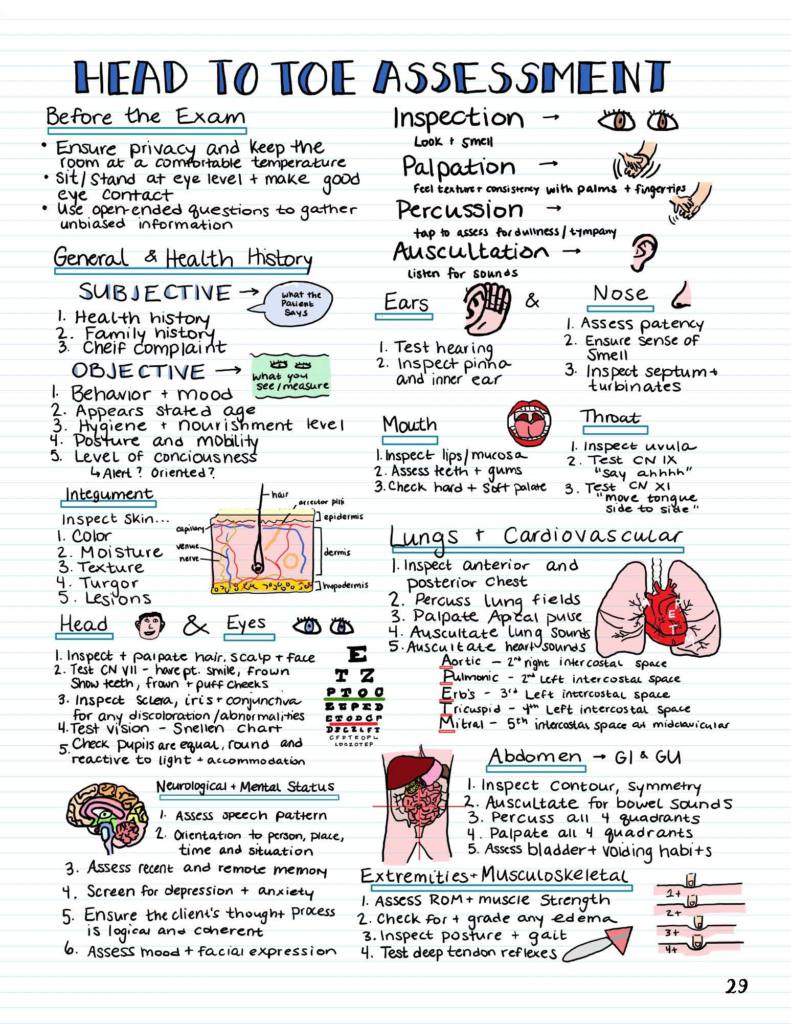 HEAD TO TOE ASSESSMENT
Before the Exam
• Ensure privacy and keep the
room at a comfortable temperature
• Sit/Stand at eye level + make good
eye contact
• Use open-ended questions to gather
unbiased information
Inspection →
Look + smell
Palpation →
Feel texture + consistency with palms + fingertips
Percussion →
tap to assess for dullness/tympany
Auscultation →
listen for sounds
General & Health History
SUBJECTIVE →
what the
Patient
Says
1. Health history
2. Family history
3. Cheif complaint
OBJECTIVE →
what you
see/measure
1. Behavior + mood
2. Appears stated age
3. Hygiene + nourishment level
4. Posture and mobility
5. Level of conciousness
↳ Alert? Oriented?
Ears
&
Nose
1. Test hearing
2. Inspect pinna
and inner ear
1. Assess patency
2. Ensure sense of
smell
3. Inspect septum +
turbinates
Mouth
1. Inspect lips/mucosa
2. Assess teeth + gums
3. Check hard + soft palate
Throat
1. Inspect uvula
2. Test CN IX
"say ahhhh"
3. Test CN XI
"move tongue
side to side"
Integument
Inspect Skin...
1. Color
2. Moisture
3. Texture
4. Turgor
5. Lesions
hair
arrector pili
epidermis
capillary
venule
nerve
dermis
hypodermis
Lungs + Cardiovascular
1. Inspect anterior and
posterior Chest
2. Percuss lung fields
3. Palpate Apical pulse
4. Auscultate lung sounds
5. Auscultate heart sounds
Aortic – 2nd right intercostal space
Pulmonic – 2nd Left intercostal space
Erb's – 3rd Left intercostal space
Tricuspid – 4th Left intercostal space
Mitral – 5th intercostal space at midclavicular
Head
& Eyes
1. Inspect + palpate hair, scalp + face
2. Test CN VII – have pt. smile, frown
Show teeth, frown + puff cheeks
3. Inspect sclera, iris + conjunctiva
for any discoloration/abnormalities
4. Test vision – Snellen Chart
5. Check pupils are equal, round and
reactive to light + accommodation
E
T Z
Neurological + Mental Status
1. Assess speech pattern
2. Orientation to person, place,
time and situation
3. Assess recent and remote memory
4. Screen for depression + anxiety
5. Ensure the client's thought process
is logical and coherent
6. Assess mood + facial expression
Abdomen → GI & GU
1. Inspect contour, symmetry
2. Auscultate for bowel sounds
3. Percuss all 4 quadrants
4. Palpate all 4 quadrants
5. Assess bladder + voiding habits
Extremities + Musculoskeletal
1. Assess ROM + muscle strength
2. Check for + grade any edema
3. Inspect posture + gait
4. Test deep tendon reflexes
1+
2+
3+
4+
29